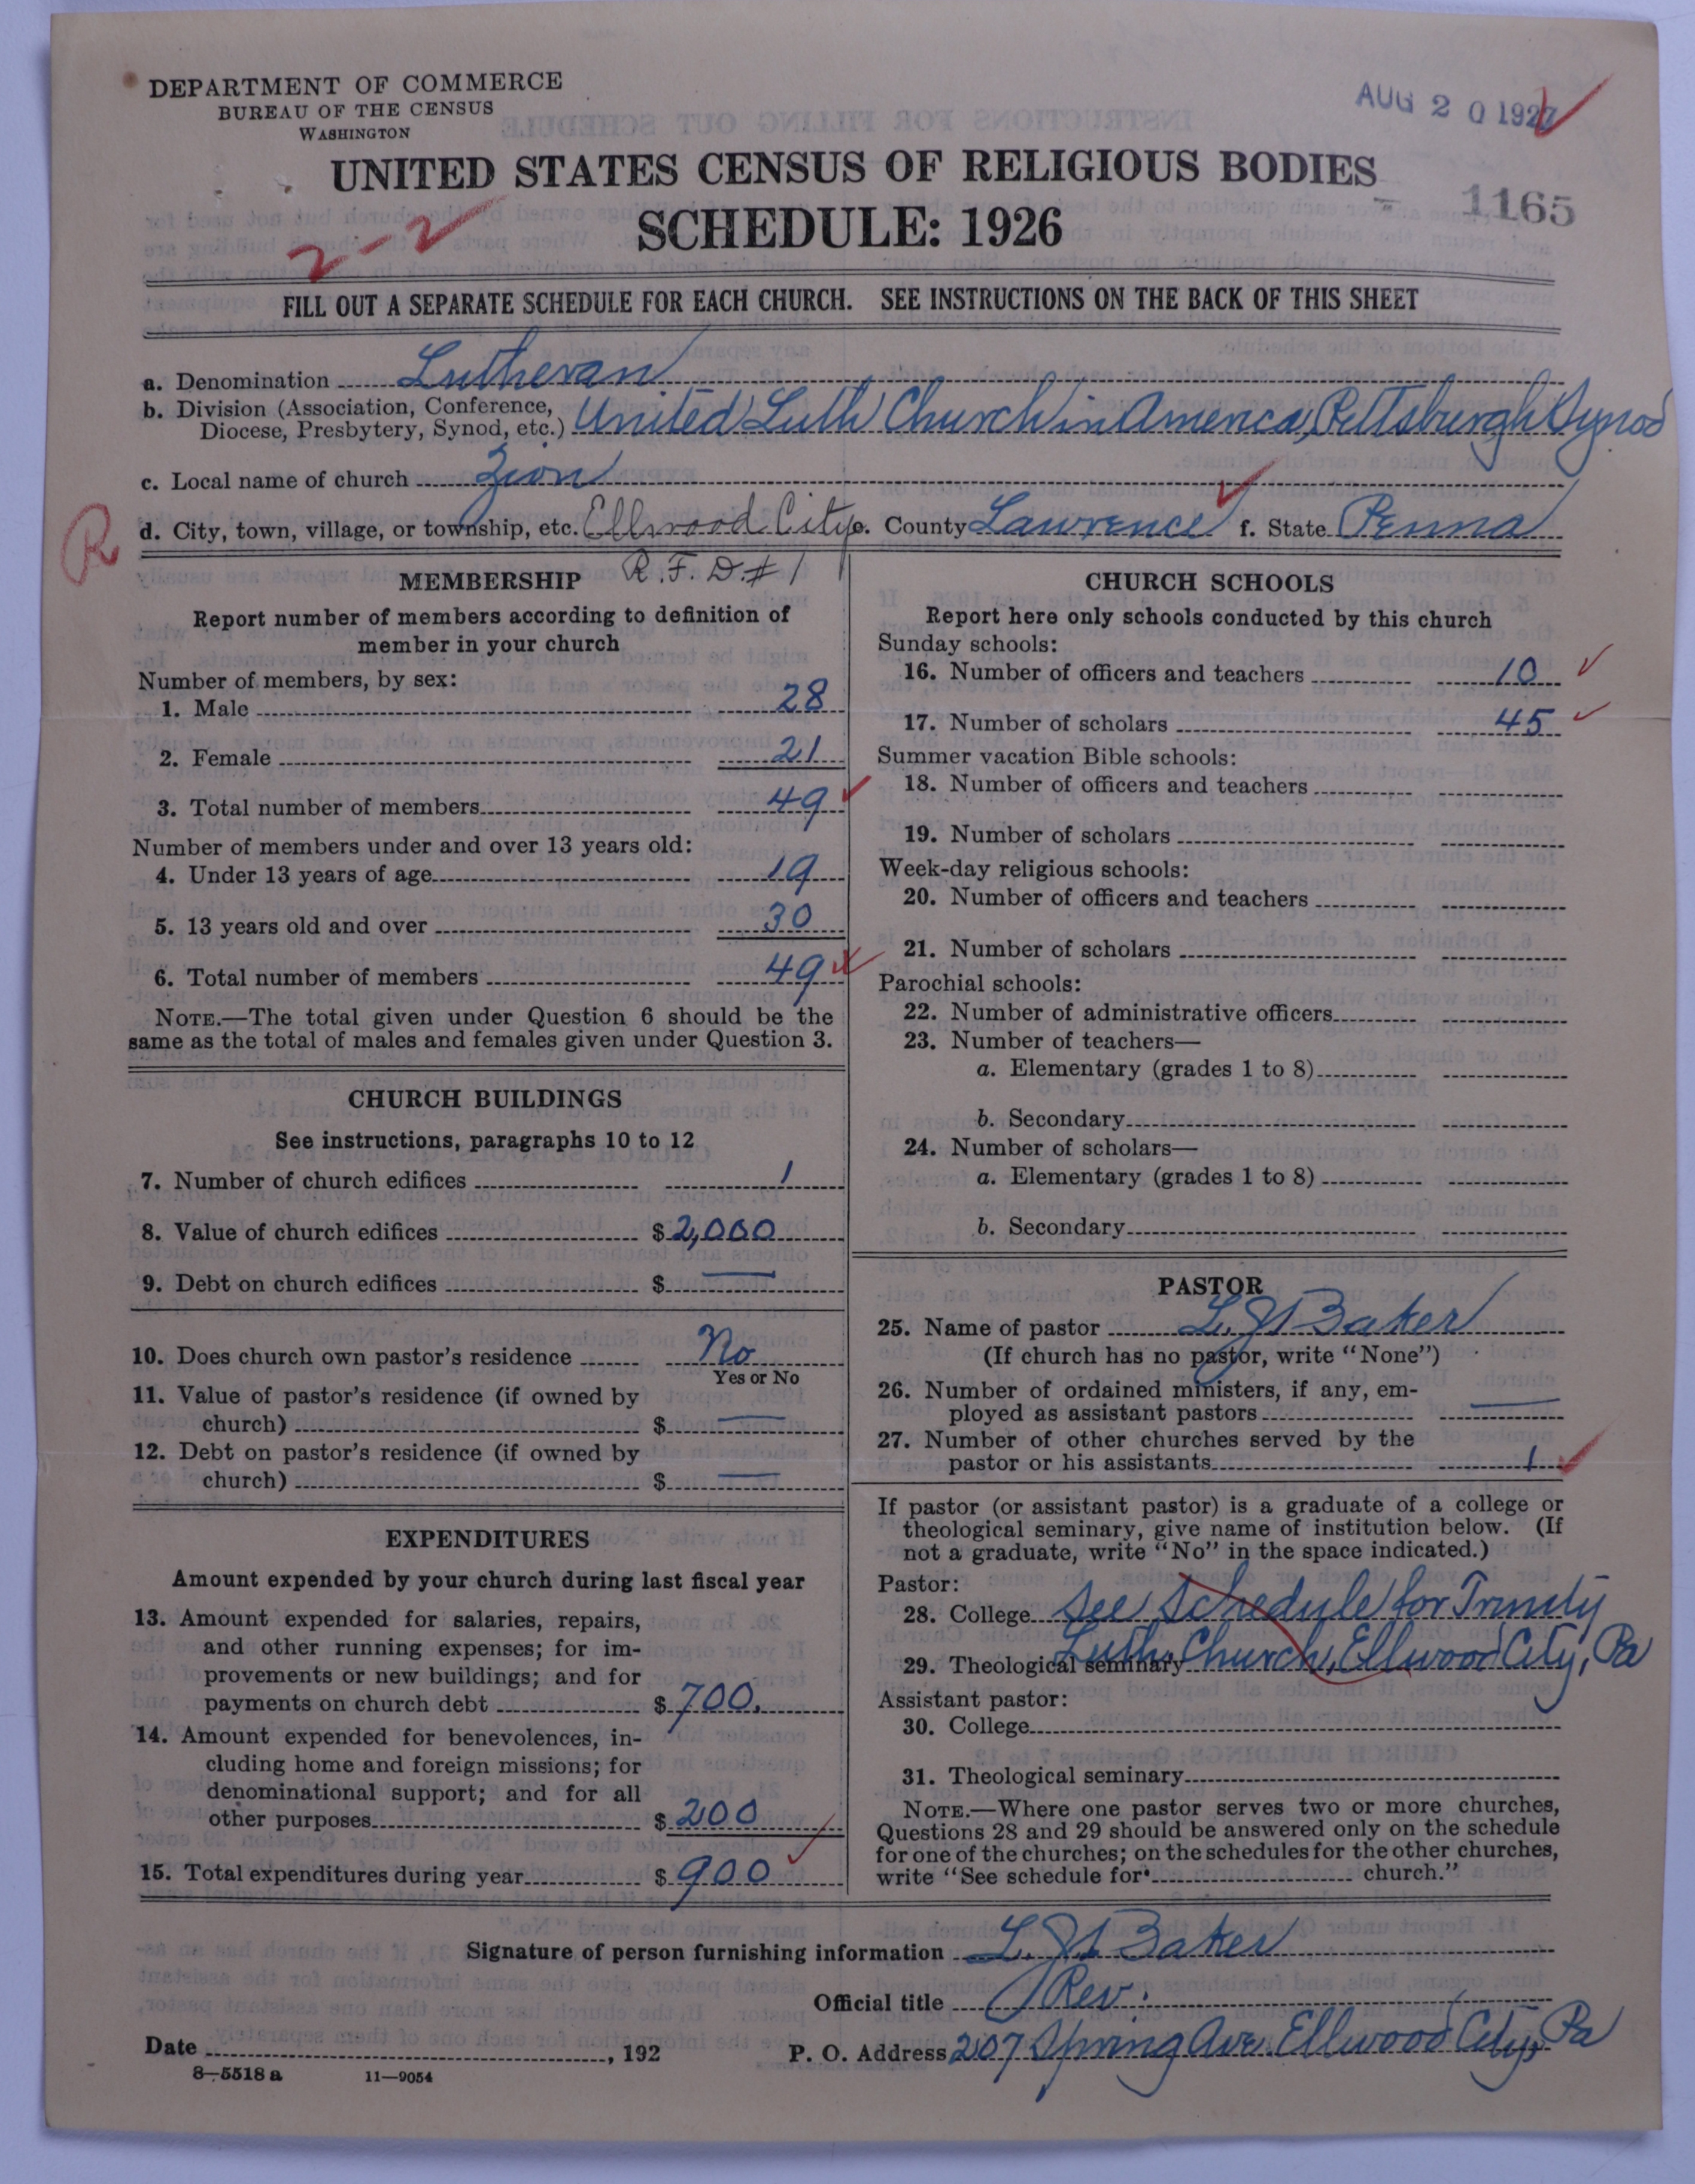 DEPARTMENT OF COMMERCE
BUREAU OF THE CENSUS
WASHINGTON
AUG 20 1927
UNITED STATES CENSUS OF RELIGIOUS BODIES
1165
SCHEDULE: 1926
2-2
FILL OUT A SEPARATE SCHEDULE FOR EACH CHURCH. SEE INSTRUCTIONS ON THE BACK OF THIS SHEET
a. Denomination Lutheran
b. Division (Association, Conference, Diocese, Presbytery, Synod, etc.) United Luth Church in America, Pittsburgh Synod
c. Local name of church Zion
R
d. City, town, village, or township, etc. Ellwood City e. County Lawrence f. State Penna
R.F.D.#1
MEMBERSHIP
Report number of members according to definition of
member in your church
Number of members, by sex:
1. Male 28
2. Female 21
3. Total number of members 49
Number of members under and over 13 years old:
4. Under 13 years of age 19
5. 13 years old and over 30
6. Total number of members 49
NOTE.—The total given under Question 6 should be the
same as the total of males and females given under Question 3.
CHURCH BUILDINGS
See instructions, paragraphs 10 to 12
7. Number of church edifices 1
8. Value of church edifices $ 2,000
9. Debt on church edifices $ —
10. Does church own pastor's residence No
Yes or No
11. Value of pastor's residence (if owned by
church) $ —
12. Debt on pastor's residence (if owned by
church) $ —
EXPENDITURES
Amount expended by your church during last fiscal year
13. Amount expended for salaries, repairs,
and other running expenses; for im-
provements or new buildings; and for
payments on church debt $ 700.
14. Amount expended for benevolences, in-
cluding home and foreign missions; for
denominational support; and for all
other purposes $ 200
15. Total expenditures during year $ 900
CHURCH SCHOOLS
Report here only schools conducted by this church
Sunday schools:
16. Number of officers and teachers 10
17. Number of scholars 45
Summer vacation Bible schools:
18. Number of officers and teachers
19. Number of scholars
Week-day religious schools:
20. Number of officers and teachers
21. Number of scholars
Parochial schools:
22. Number of administrative officers
23. Number of teachers—
a. Elementary (grades 1 to 8)
b. Secondary
24. Number of scholars—
a. Elementary (grades 1 to 8)
b. Secondary
PASTOR
25. Name of pastor L. J. Baker
(If church has no pastor, write "None")
26. Number of ordained ministers, if any, em-
ployed as assistant pastors —
27. Number of other churches served by the
pastor or his assistants 1
If pastor (or assistant pastor) is a graduate of a college or
theological seminary, give name of institution below. (If
not a graduate, write "No" in the space indicated.)
Pastor:
28. College See Schedule for Trinity
29. Theological seminary Luth. Church, Ellwood City, Pa
Assistant pastor:
30. College
31. Theological seminary
NOTE.—Where one pastor serves two or more churches,
Questions 28 and 29 should be answered only on the schedule
for one of the churches; on the schedules for the other churches,
write "See schedule for church."
Signature of person furnishing information L. J. Baker
Official title Rev.
Date , 192 P. O. Address 207 Spring Ave. Ellwood City, Pa
8—5518 a 11—9054